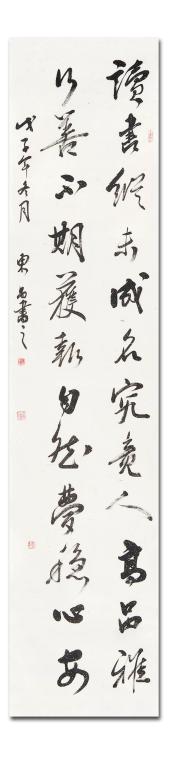 讀書縱未成名究竟人高品雅
行善不期獲報自然夢穩心安
戊子年冬月 東昌書之